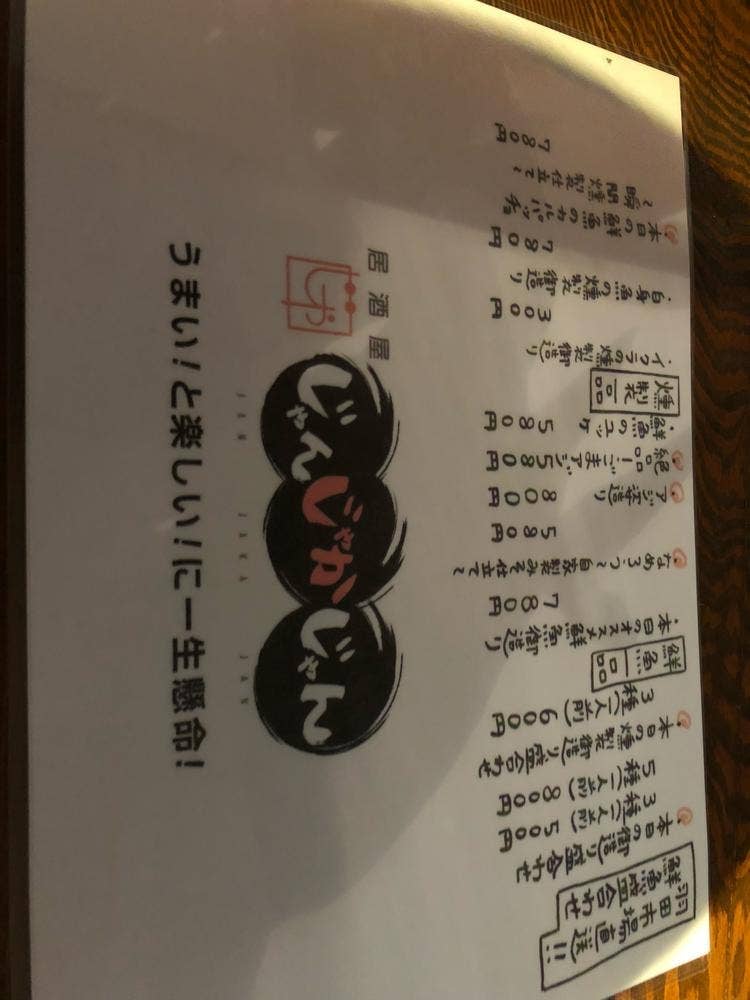 羽田市場直送!!
鮮魚盛合わせ
本日の御造り盛合わせ
3種(一人前)500円
5種(一人前)800円
本日の燻製御造り盛合わせ
3種(一人前)600円
鮮魚一品
・本日のオススメ鮮魚御造り
780円
なめろう〜自家製みそ仕立て〜
580円
アジ姿造り 800円
絶品!ごまアジ580円
・鮮魚のユッケ 580円
燻製一品
・イクラの燻製御造り
300円
・白身魚の燻製御造り
780円
本日の鮮魚のカルパッチョ
〜瞬間燻製仕立て〜
780円
居酒屋
じゃんじゃかじゃん
JAN JAKA JAN
うまい!と楽しい!に一生懸命!